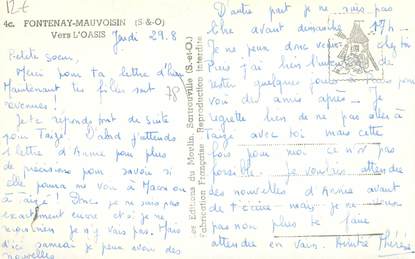 12€
4c. FONTENAY-MAUVOISIN (S-&-O)
Vers L'OASIS
Jeudi 29.8
Petite Soeur,
Merci pour ta lettre d'hier
Maintenant les filles sont
revenues!
Je te réponds tout de suite
pour Taizé. D'abord j'attends
1 lettre d'Annie pour plus
de précisions pour savoir si
elle pourra me voir à Macon
ou à Taizé! Donc je ne suis pas
exactement encore et si je ne
vais pas. Mais
d'ici samedi je peux avoir des
nouvelles
78
et Editions du Moulin, Sartrouville (S.-et-O.)
Fabrication Française Reproduction Interdite
D'autre part je ne suis pas
libre avant dimanche 17h
Je ne peux donc venir
Puis j'ai bien l'intention de
rester quelques jours
voir des amis après. Je
regrette bien de ne pas aller à
Taizé avec toi mais cette
fois pour moi ce n'est pas
possible. Je voulais attendre
des nouvelles d'Annie avant
de t'écrire mais je ne
pas non plus te faire
attendre en vain. Thérèse